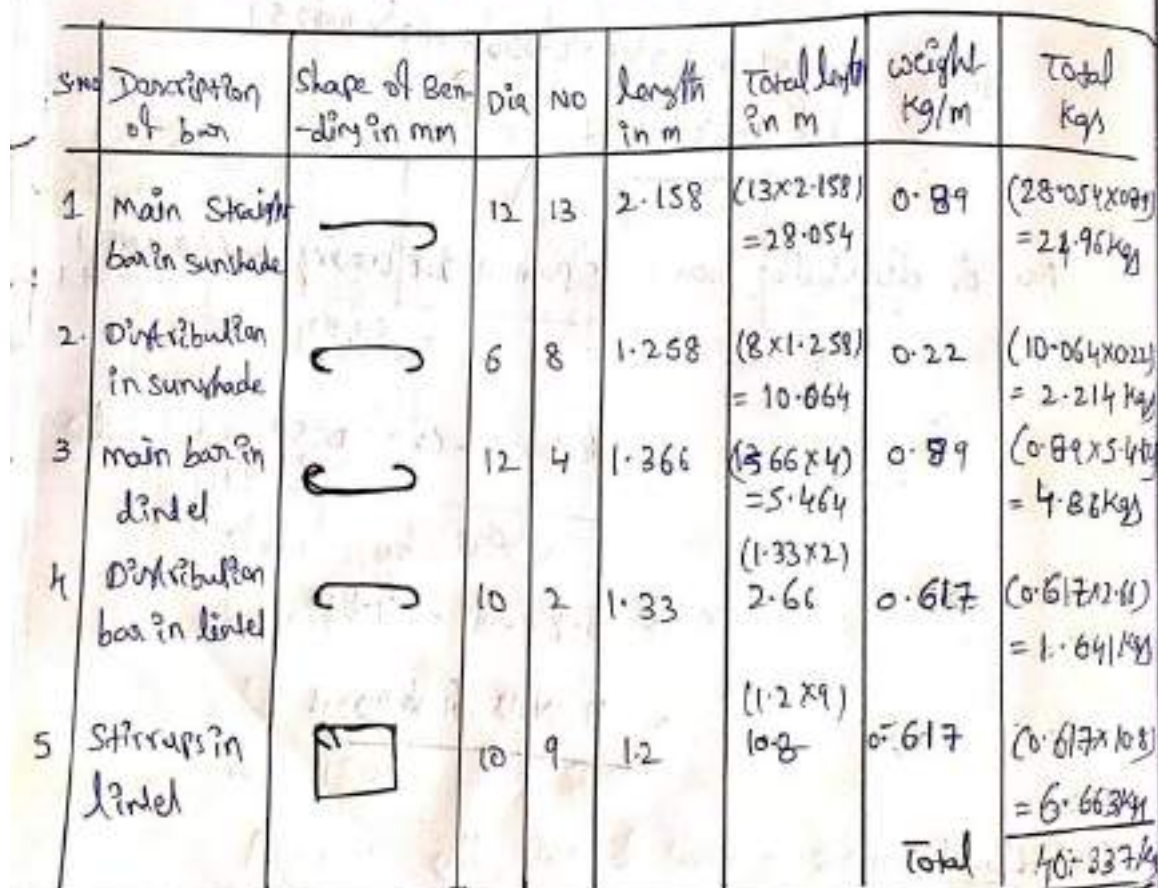 S.No Description of bar Shape of Ben-ding in mm Dia NO length in m Total length in m weight kg/m Total Kgs
1 main Straight bar in sunshade 12 13 2.158 (13×2.158) =28.054 0.89 (28.054×0.89) =24.96Kgs
2. Distribution in sunshade 6 8 1.258 (8×1.258) = 10.064 0.22 (10.064×022) = 2.214 Kgs
3 main bar in lintel 12 4 1.366 (1366×4) =5.464 0.89 (0.89×5.464) = 4.86Kgs
4 Distribution bar in lintel 10 2 1.33 (1.33×2) 2.66 0.617 (0.617×2.66) = 1.641 Kgs
5 Stirrups in lintel 10 9 1.2 (1.2×9) 10.8 0.617 (0.617×10.8) = 6.663Kgs
Total 40.337 Kg